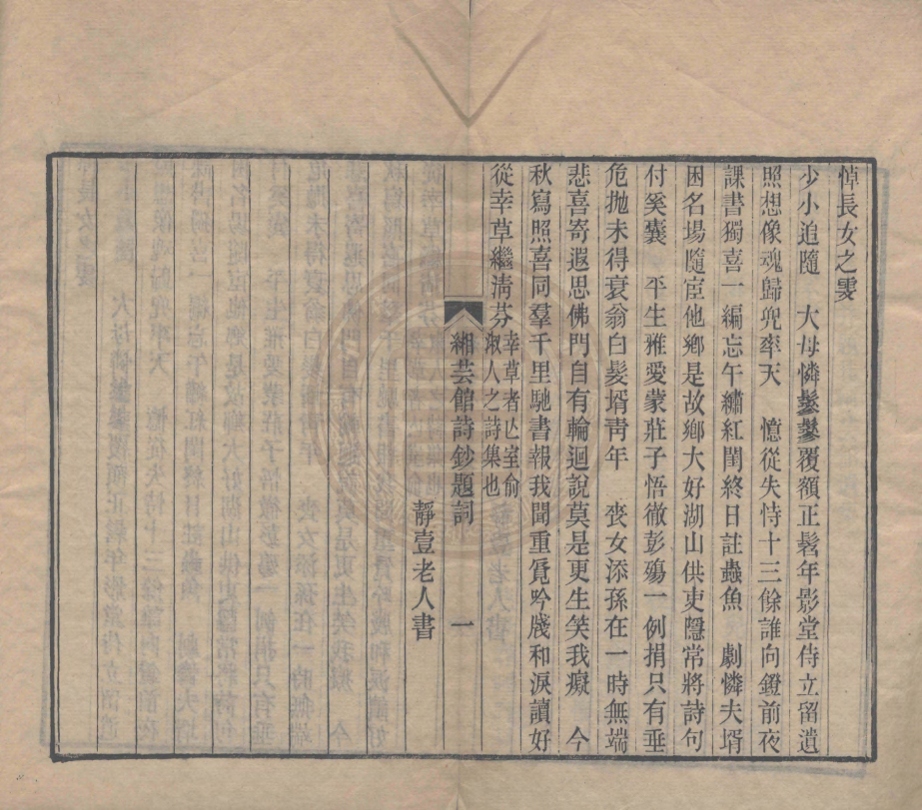 悼長女之雯
少小追隨　大母憐鬖鬖覆額正髫年影堂侍立留遺
照想像魂歸兜率天　憶從失恃十三餘誰向鐙前夜
課書獨喜一編忘午繡紅閨終日註蟲魚　劇憐夫壻
困名場隨宦他鄉是故鄉大好湖山供吏隱常將詩句
付奚囊　平生雅愛蒙莊子悟徹彭殤一例捐只有垂
危拋未得衰翁白髮壻靑年　喪女添孫在一時無端
悲喜寄遐思佛門自有輪迴說莫是更生笑我癡　今
秋寫照喜同羣千里馳書報我聞重覓吟牋和淚讀好
從幸草繼淸芬幸草者亡室俞
淑人之詩集也
緗芸館詩鈔題詞　一
靜壹老人書